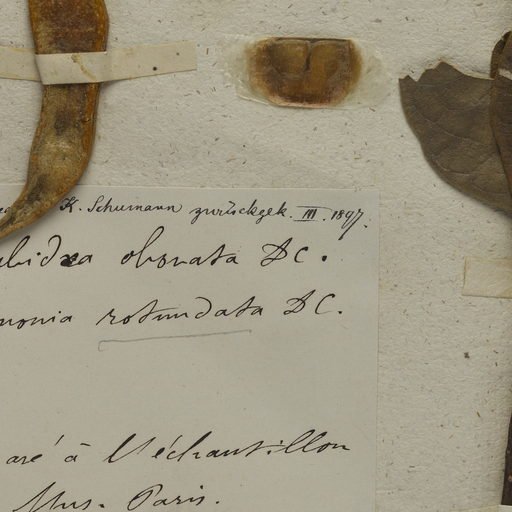 K. Schumann zurückgek. III. 1897.
obovata DC.
rotundata DC.
à l'échantillon
Mus. Paris.